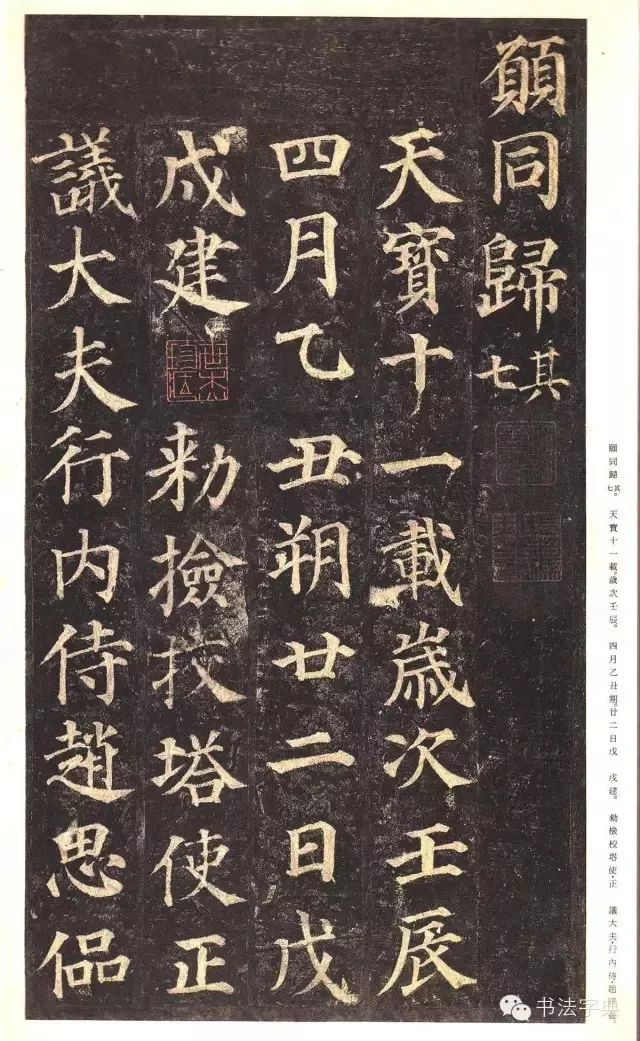 願同歸其七
天寶十一載歲次壬辰
四月乙丑朔廿二日戊
戍建勑撿挍塔使正
議大夫行内侍趙思侐
願同歸其七。天寶十一載。歲次壬辰。四月乙丑朔。廿二日戊戍建。勅檢校塔使·正議大夫·行內侍·趙思
书法字典